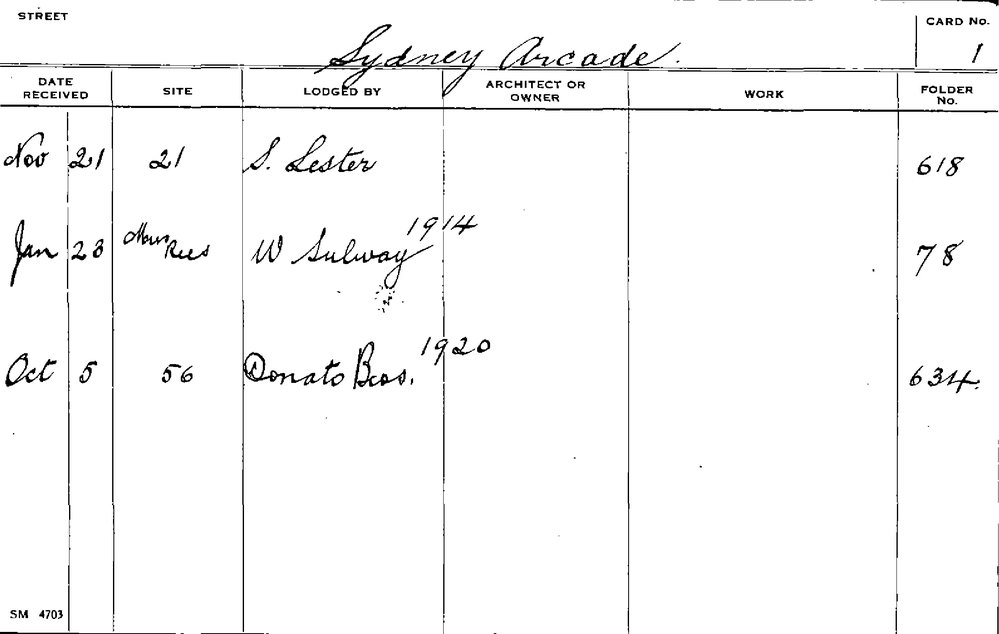 STREET
CARD No.
Sydney Arcade.
1
DATE RECEIVED SITE LODGED BY ARCHITECT OR OWNER WORK FOLDER No.
Nov 21 21 S. Lester 618
1914
Jan 23 Rees W Sulway 78
1920
Oct 5 56 Donato Bros. 634
SM 4703